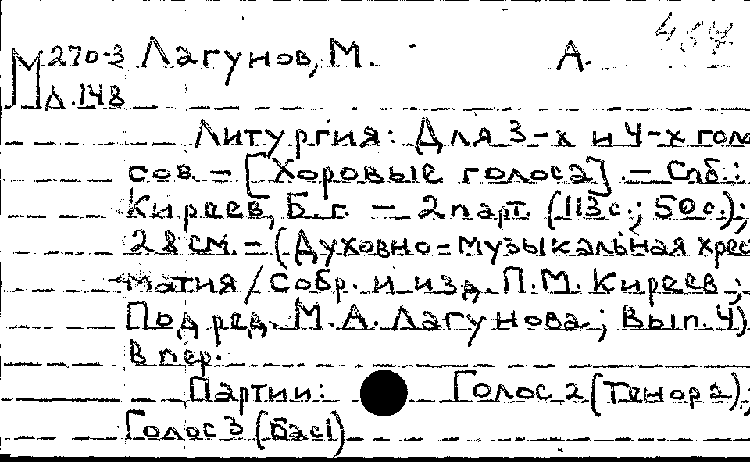 454
М 270-3 Лагунов, М. А.
Л.148
Литургия: Для 3-х и 4-х голо
сов. - [Хоровые голоса]. - Спб.:
Киреев, Б.г. - 2парт. (113с.; 50с.);
28см. - (Духовно-музыкальная хрес
матия / Собр. и изд. П.М. Киреев ;
Под ред. М.А. Лагунова ; Вып. 4)
В пер.
Партии: Голос 2 (Тенор 2),
Голос 3 (Бас1)